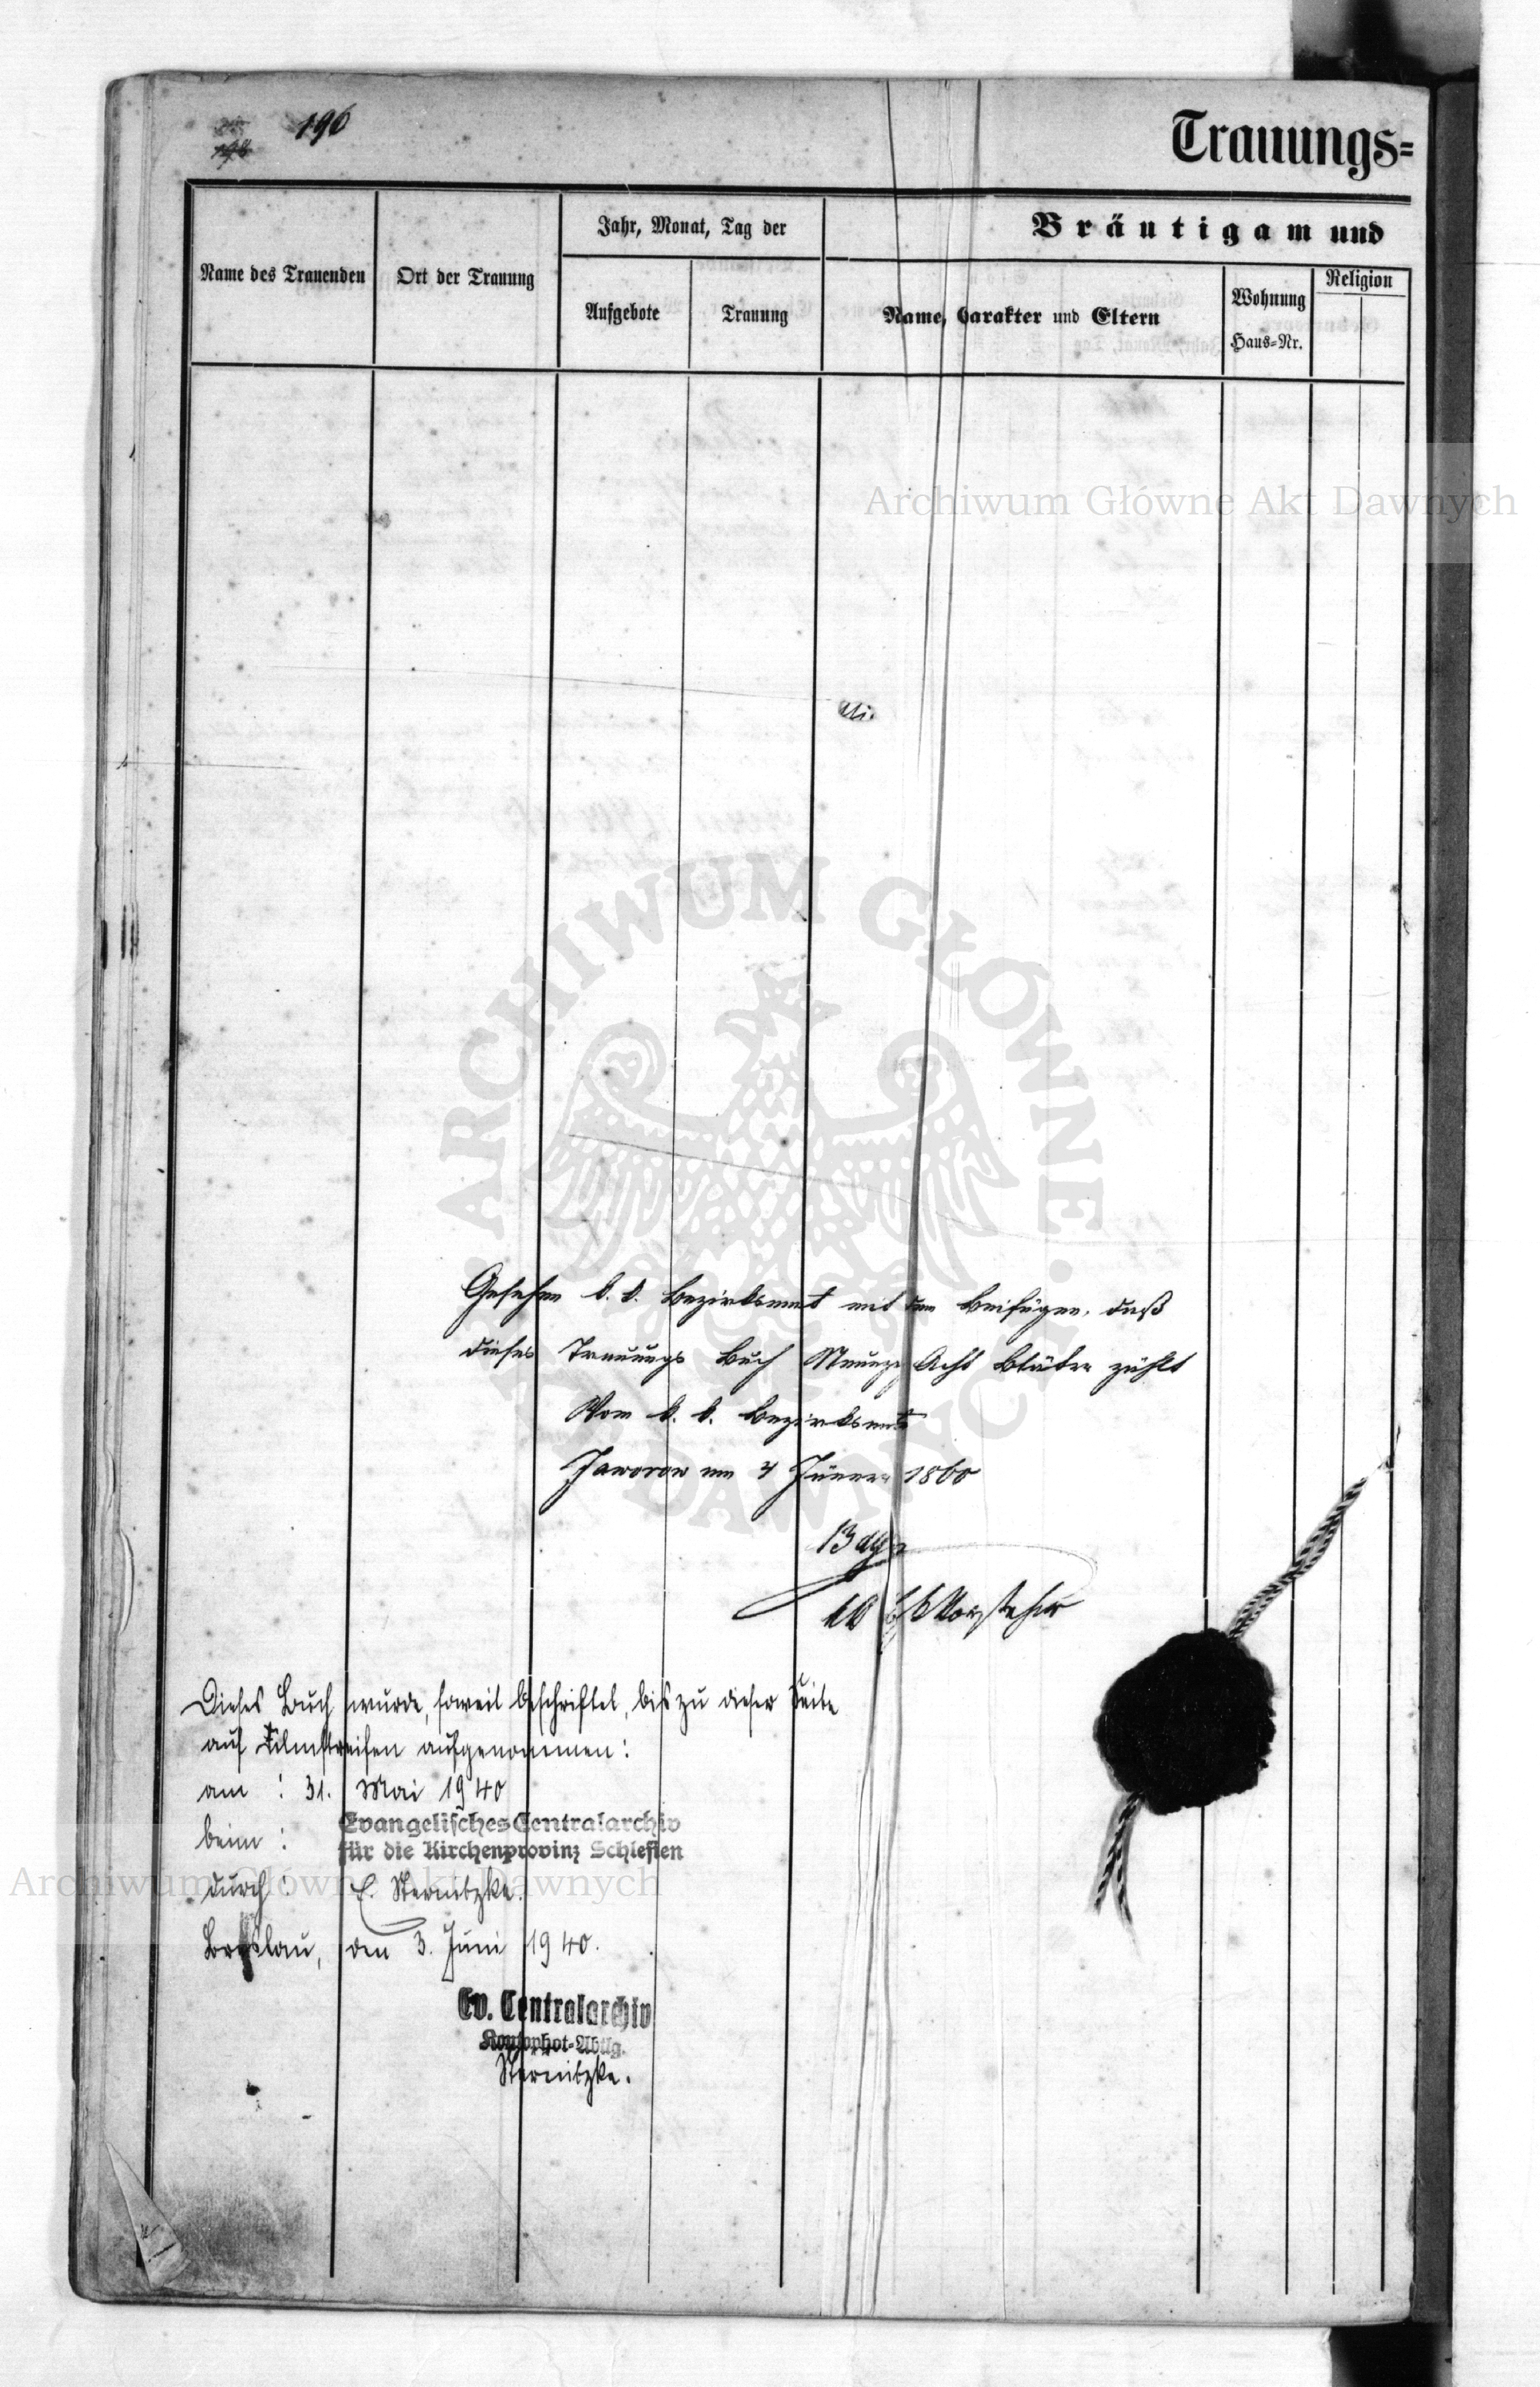 196
Trauungs=
Name des Trauenden
Ort der Trauung
Jahr, Monat, Tag der
Aufgebote
Trauung
Bräutigam und
Name, Carakter und Eltern
Wohnung
Haus=Nr.
Religion
Archiwum Główne Akt Dawnych
ARCHIWUM GŁÓWNE AKT DAWNYCH
Gesehen k. k. Bezirksamt mit dem Beifügen, daß
dieses Trauungs Buch Neunzig Acht Blätter zählt
Vom k. k. Bezirksamt
Jaworow am 4 Jänner 1860
kk Vorsteher
Dieses Buch wurde, soweit beschriftet, bis zu dieser Seite
auf Filmstreifen aufgenommen:
am : 31. Mai 1940
beim : Evangelisches Centralarchiv
für die Kirchenprovinz Schlesien
Archiwum Główne Akt Dawnych
durch : E. Sternitzke.
Breslau, den 3. Juni 1940.
Ev. Centralarchiv
Kontophot=Abtlg.
Sternitzke.